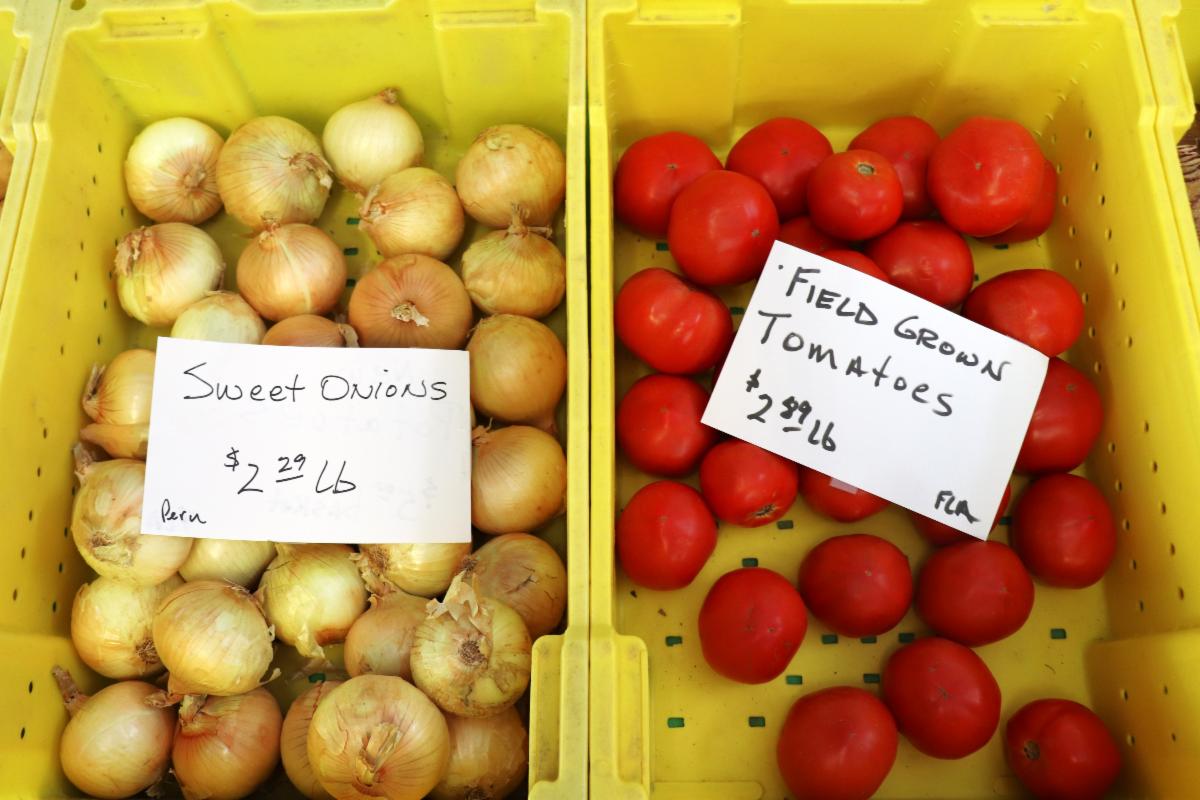 Sweet Onions
$2 29 Lb
Peru
FIELD GROWN
Tomatoes
$2 89 Lb
FLA